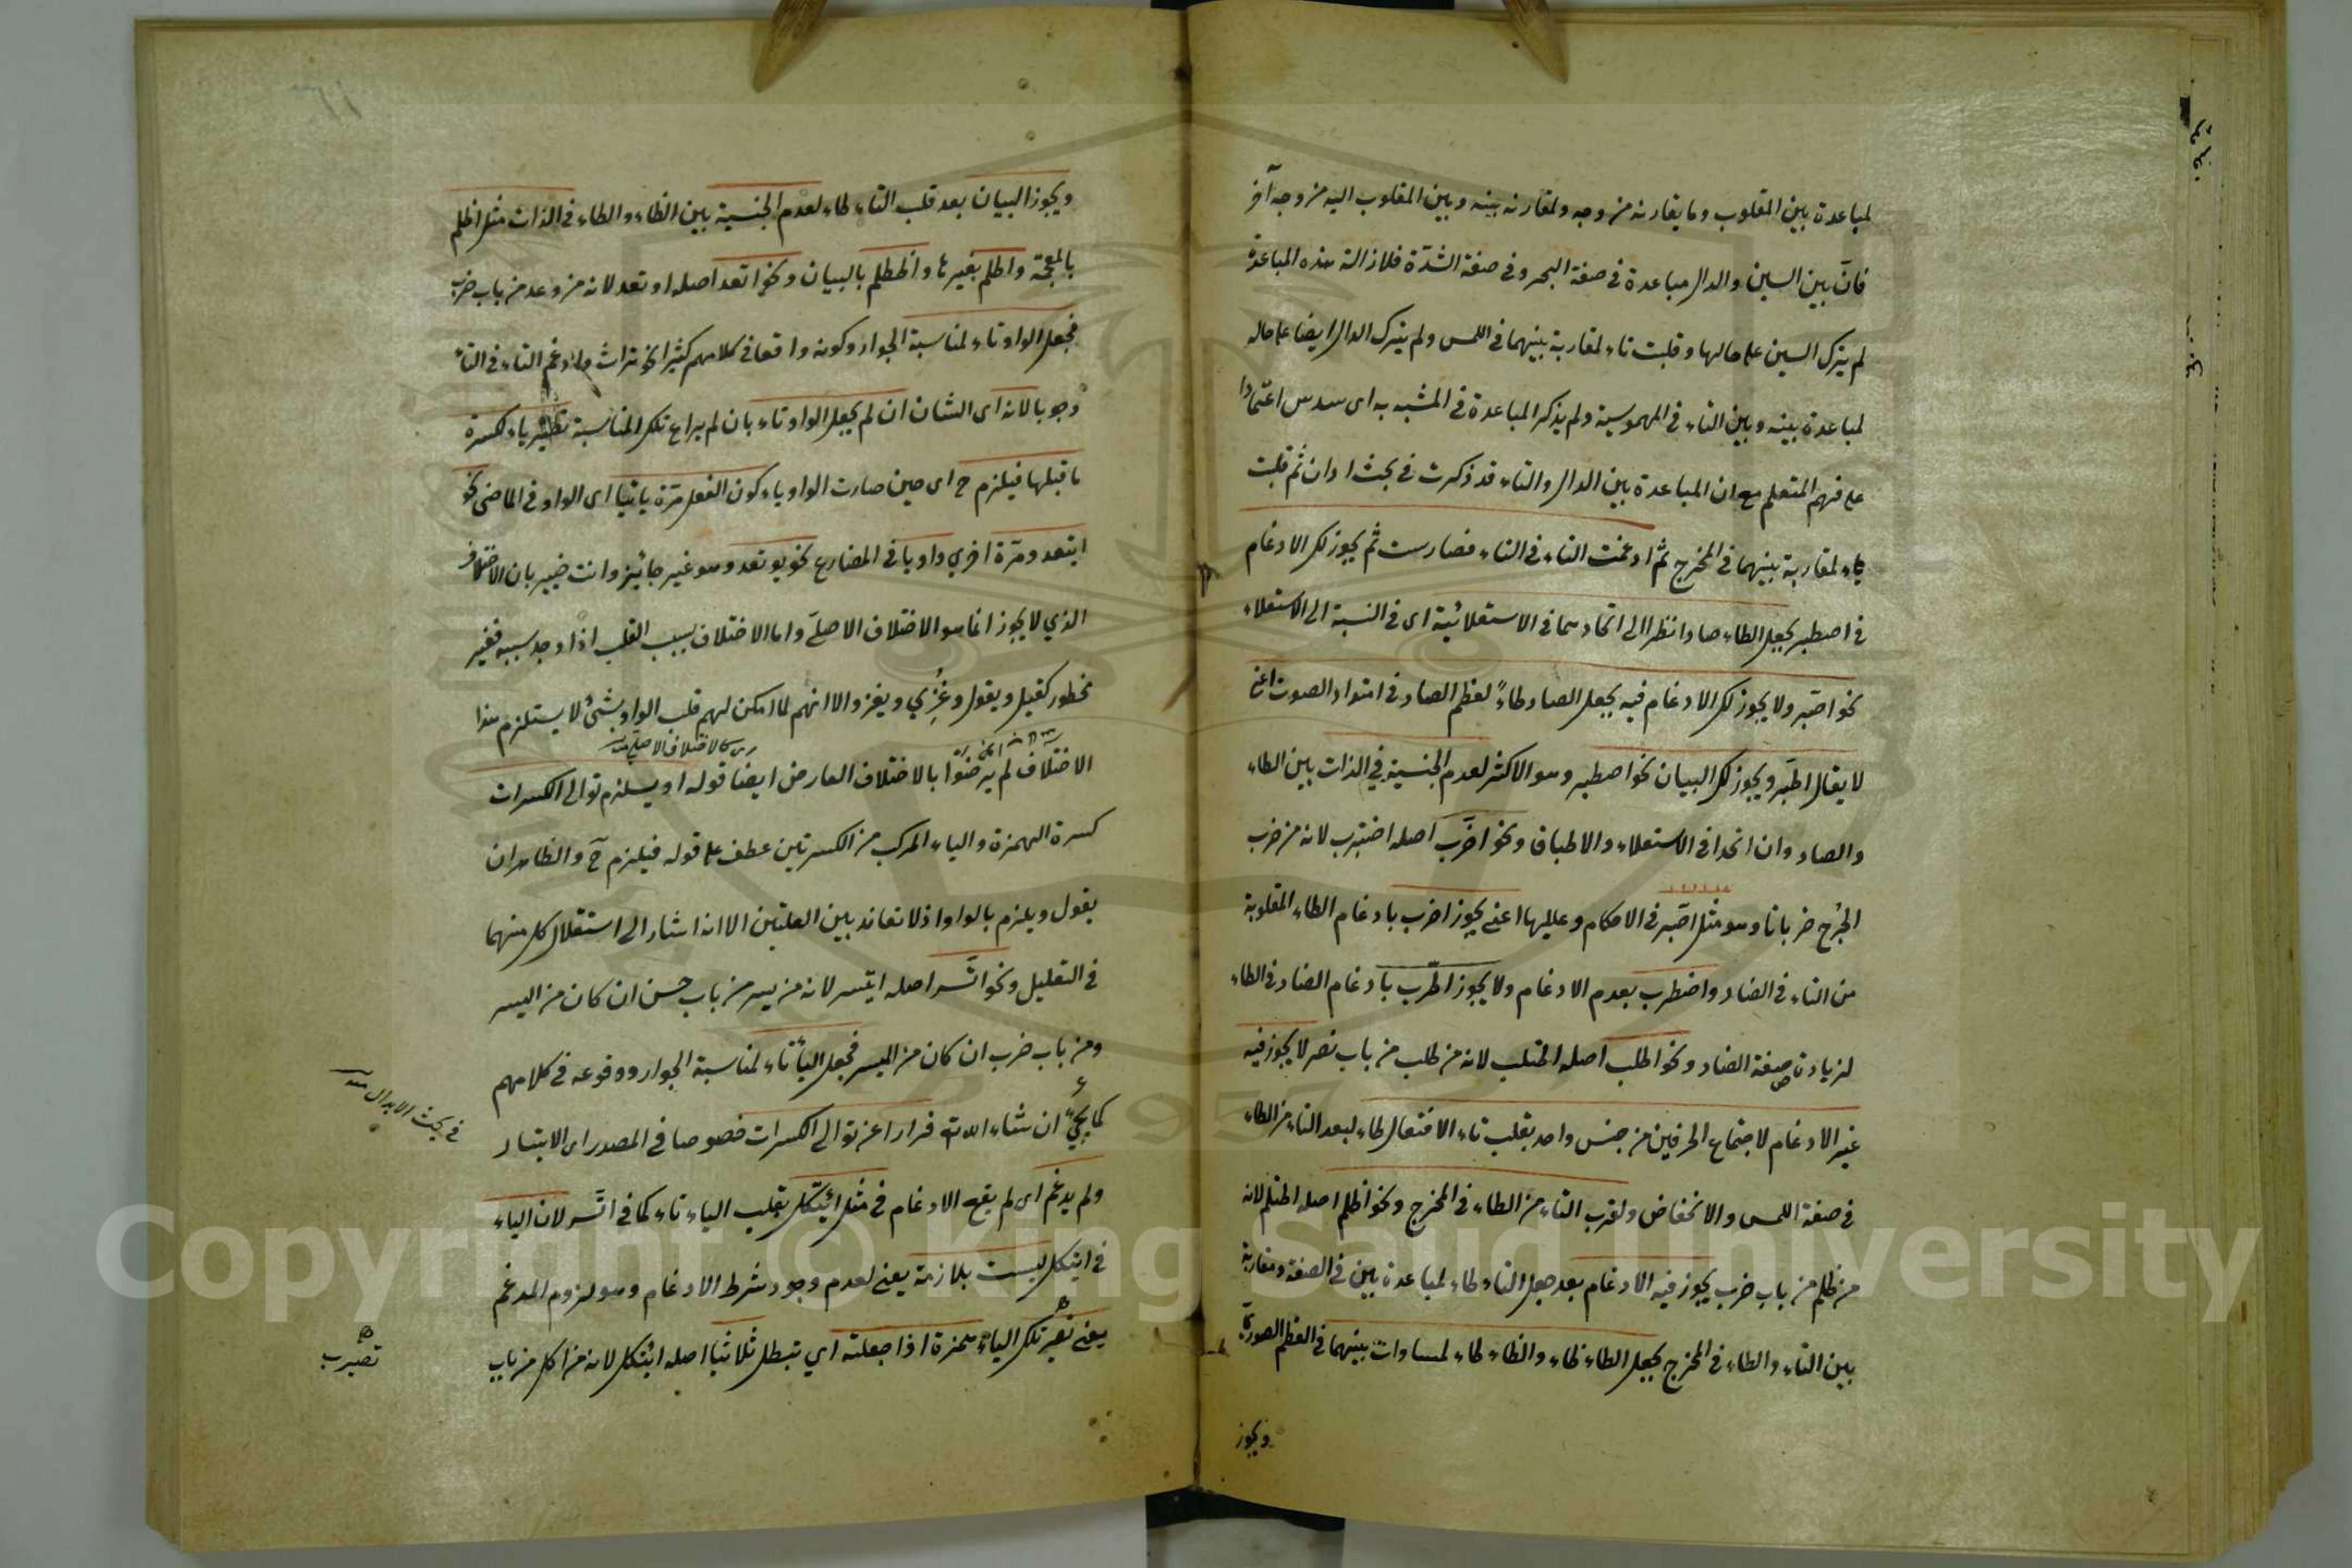 لمباعدة بين المقلوب وما يقارنه من وجه ولمقارنه بينه وبين المقلوب اليه من وجه آخر
فانّ بين السين والدال مباعدة في صفة الجهر وفي صفة الشدّة فلازالة هذه المباعدة
لم يترك السين على حالها وقلبت تاء لمقاربة بينهما في الهمس ولم يترك الدال ايضا على حاله
لمباعدة بينه وبين التاء في المهموسية ولم يذكر المباعدة في المشبه به اى سدس اعتمادا
على فهم المتعلم مع ان المباعدة بين الدال والتاء قد ذكرت في بحث ادان ثم قلبت
تاء لمقاربة بينهما في المخرج ثم ادغمت التاء في التاء فصار ست ثم يجوز لك الادغام
في اصطبر بجعل الطاء صادا نظرا الى اتحادهما في الاستعلائية اى في النسبة الى الاستعلاء
نحو اصّبر ولا يجوز لك الادغام فيه بجعل الصاد طاءً لعظم الصاد في امتداد الصوت اعني
لا يقال اطّبر ويجوز لك البيان نحو اصطبر وهو الاكثر لعدم الجنسية في الذات بين الطاء
والصاد وان اتحدا في الاستعلاء والاطباق ونحو اضّرب اصله اضترب لانه من ضرب
الجرح ضربانا وهو مثل اصّبر في الاحكام وعللها اعني يجوز اضرب بادغام الطاء المقلوبة
من التاء في الضاد واضطرب بعدم الادغام ولا يجوز اطّرب بادغام الضاد في الطاء
لزيادة صفة الضاد ونحو اطلب اصله اطتلب لانه من طلب من باب نصر لا يجوز فيه
غير الادغام لاجتماع الحرفين من جنس واحد بقلب تاء الافتعال طاء لبعد التاء من الطاء
في صفة الهمس والانخفاض ولقرب التاء من الطاء في المخرج ونحو اظلم اصله اظتلم لانه
من ظلم من باب ضرب يجوز فيه الادغام بعد جعل التاء طاء لمباعدة بين في الصفة ومقاربة
بين التاء والطاء في المخرج بجعل الطاء ظاء والظاء طاء لمساوات بينهما في العظم الصورى
ويجوز
ويجوز البيان بعد قلب التاء طاء لعدم الجنسية بين الظاء والطاء في الذات مثل اظلم
بالمعجمة واطلم بغيرها واظطلم بالبيان ونحو اتعد اصله اوتعد لانه من وعد من باب ضرب
فجعل الواو تاء لمناسبة الجوار وكونه واقعا في كلامهم كثيرا نحو تراث وادغم التاء في التاء
وجوبا لانه اى الشان ان لم يجعل الواو تاء بان لم يراع تلك المناسبة تصير ياء لكسرة
ما قبلها فيلزم ح اى حين صارت الواو ياء كون الفعل مرّة يائيا اى الواو في الماضى نحو
ايتعد ومرّة اخرى واويا في المضارع نحو يوتعد وهو غير جائز وانت خبير بان الاختلاف
الذي لا يجوز انما هو الاختلاف الاصلىّ واما الاختلاف بسبب القلب اذا وجد سببه فغير
محظور كقيل ويقول وغُزِي ويغزو الا انهم لما امكن لهم قلب الواو بشئ لا يستلزم هذا
كالاختلاف الاصلى منه
الاختلاف لم يرضوا بالاختلاف العارض ايضا قوله او يستلزم توالى الكسرات
كسرة الهمزة والياء المركب من الكسرتين عطف على قوله فيلزم ح والظاهر ان
يقول ويلزم بالواو اذ لا تعاند بين العلتين الا انه اشار الى استقلال كل منهما
في التعليل ونحو اتّسر اصله ايتسر لانه من يسر من باب حسن ان كان من اليسر
ومن باب ضرب ان كان من الميسر فجعل الياء تاء لمناسبة الجوار ووقوعه في كلامهم
كما يجئ ان شاء الله ت فرارا عن توالى الكسرات خصوصا في المصدر اى الايتسار
في بحث الابدال منه
ولم يدغم اى لم يقع الادغام في مثل ائتكل بقلب الياء تاء كما في اتّسر لان الياء
في ايتكل ليست بلازمة يعنى لعدم وجود شرط الادغام وهو لزوم المدغم
يعنى تصير تلك الياء همزة اذا جعلته اي تبطل ثلاثيا اصله ائتكل لانه من اكل من باب
تصيرب
Copyright © King Saud University